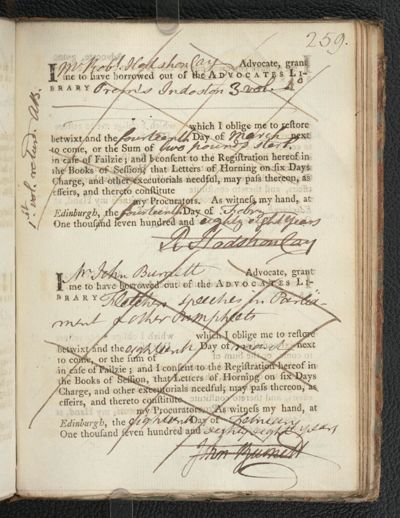 259.
I Mr Robt. Hodshon Cay Advocate, grant
me to have borrowed out of the ADVOCATES LI-
BRARY Orom's Indoston 3 vol. 4o
which I oblige me to restore
betwixt and the fourteenth Day of March next
to come, or the Sum of two pounds sterl.
in case of Failzie; and I consent to the Registration hereof in
the Books of Session; that Letters of Horning on six Days
Charge, and other executorials needful, may pass thereon, as
effeirs, and thereto constitute
my Procurators. As witness my hand, at
Edinburgh, the fourteenth Day of Febry
One thousand seven hundred and eighty eight years
R Hodshon Cay
1st. vol. returd. AB.
I Mr John Burnett Advocate, grant
me to have borrowed out of the ADVOCATES LI-
BRARY Fletchers speeches in Parlia-
ment & other Pamphlets
which I oblige me to restore
betwixt and the eighteenth Day of March next
to come, or the sum of
in case of Failzie; and I consent to the Registration hereof in
the Books of Session, that Letters of Horning on six Days
Charge, and other executorials needful; may pass thereon, as
effeirs, and thereto constitute
my Procurators. As witness my hand, at
Edinburgh, the eighteenth Day of
One thousand seven hundred and eighty eight years
John Burnett